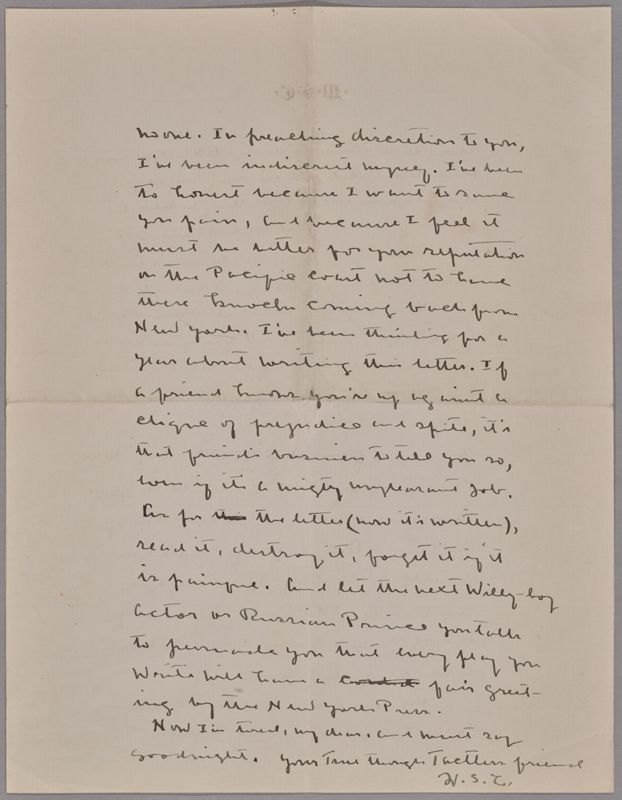 no one. In preaching discretion to you,
I've been indiscreet myself. I've been
so honest because I want to save
you pain, and because I feel it
must be better for your reputation
on the Pacific Coast not to have
these knocks coming back from
New York. I've been thinking for a
year about writing this letter. If
a friend knows you're up against a
clique of prejudice and spite, it's
that friend's business to tell you so,
even if it's a mighty unpleasant job.
As for the letter (now it's written),
read it, destroy it, forget it if it
is painful. And let the next Willy-boy
actor or Russian Prince you talk
to persuade you that every play you
write will have a fair greet-
ing by the New York Press.
Now I'm tired, my dear, and must say
goodnight. Your true though tactless friend
W.S.C.